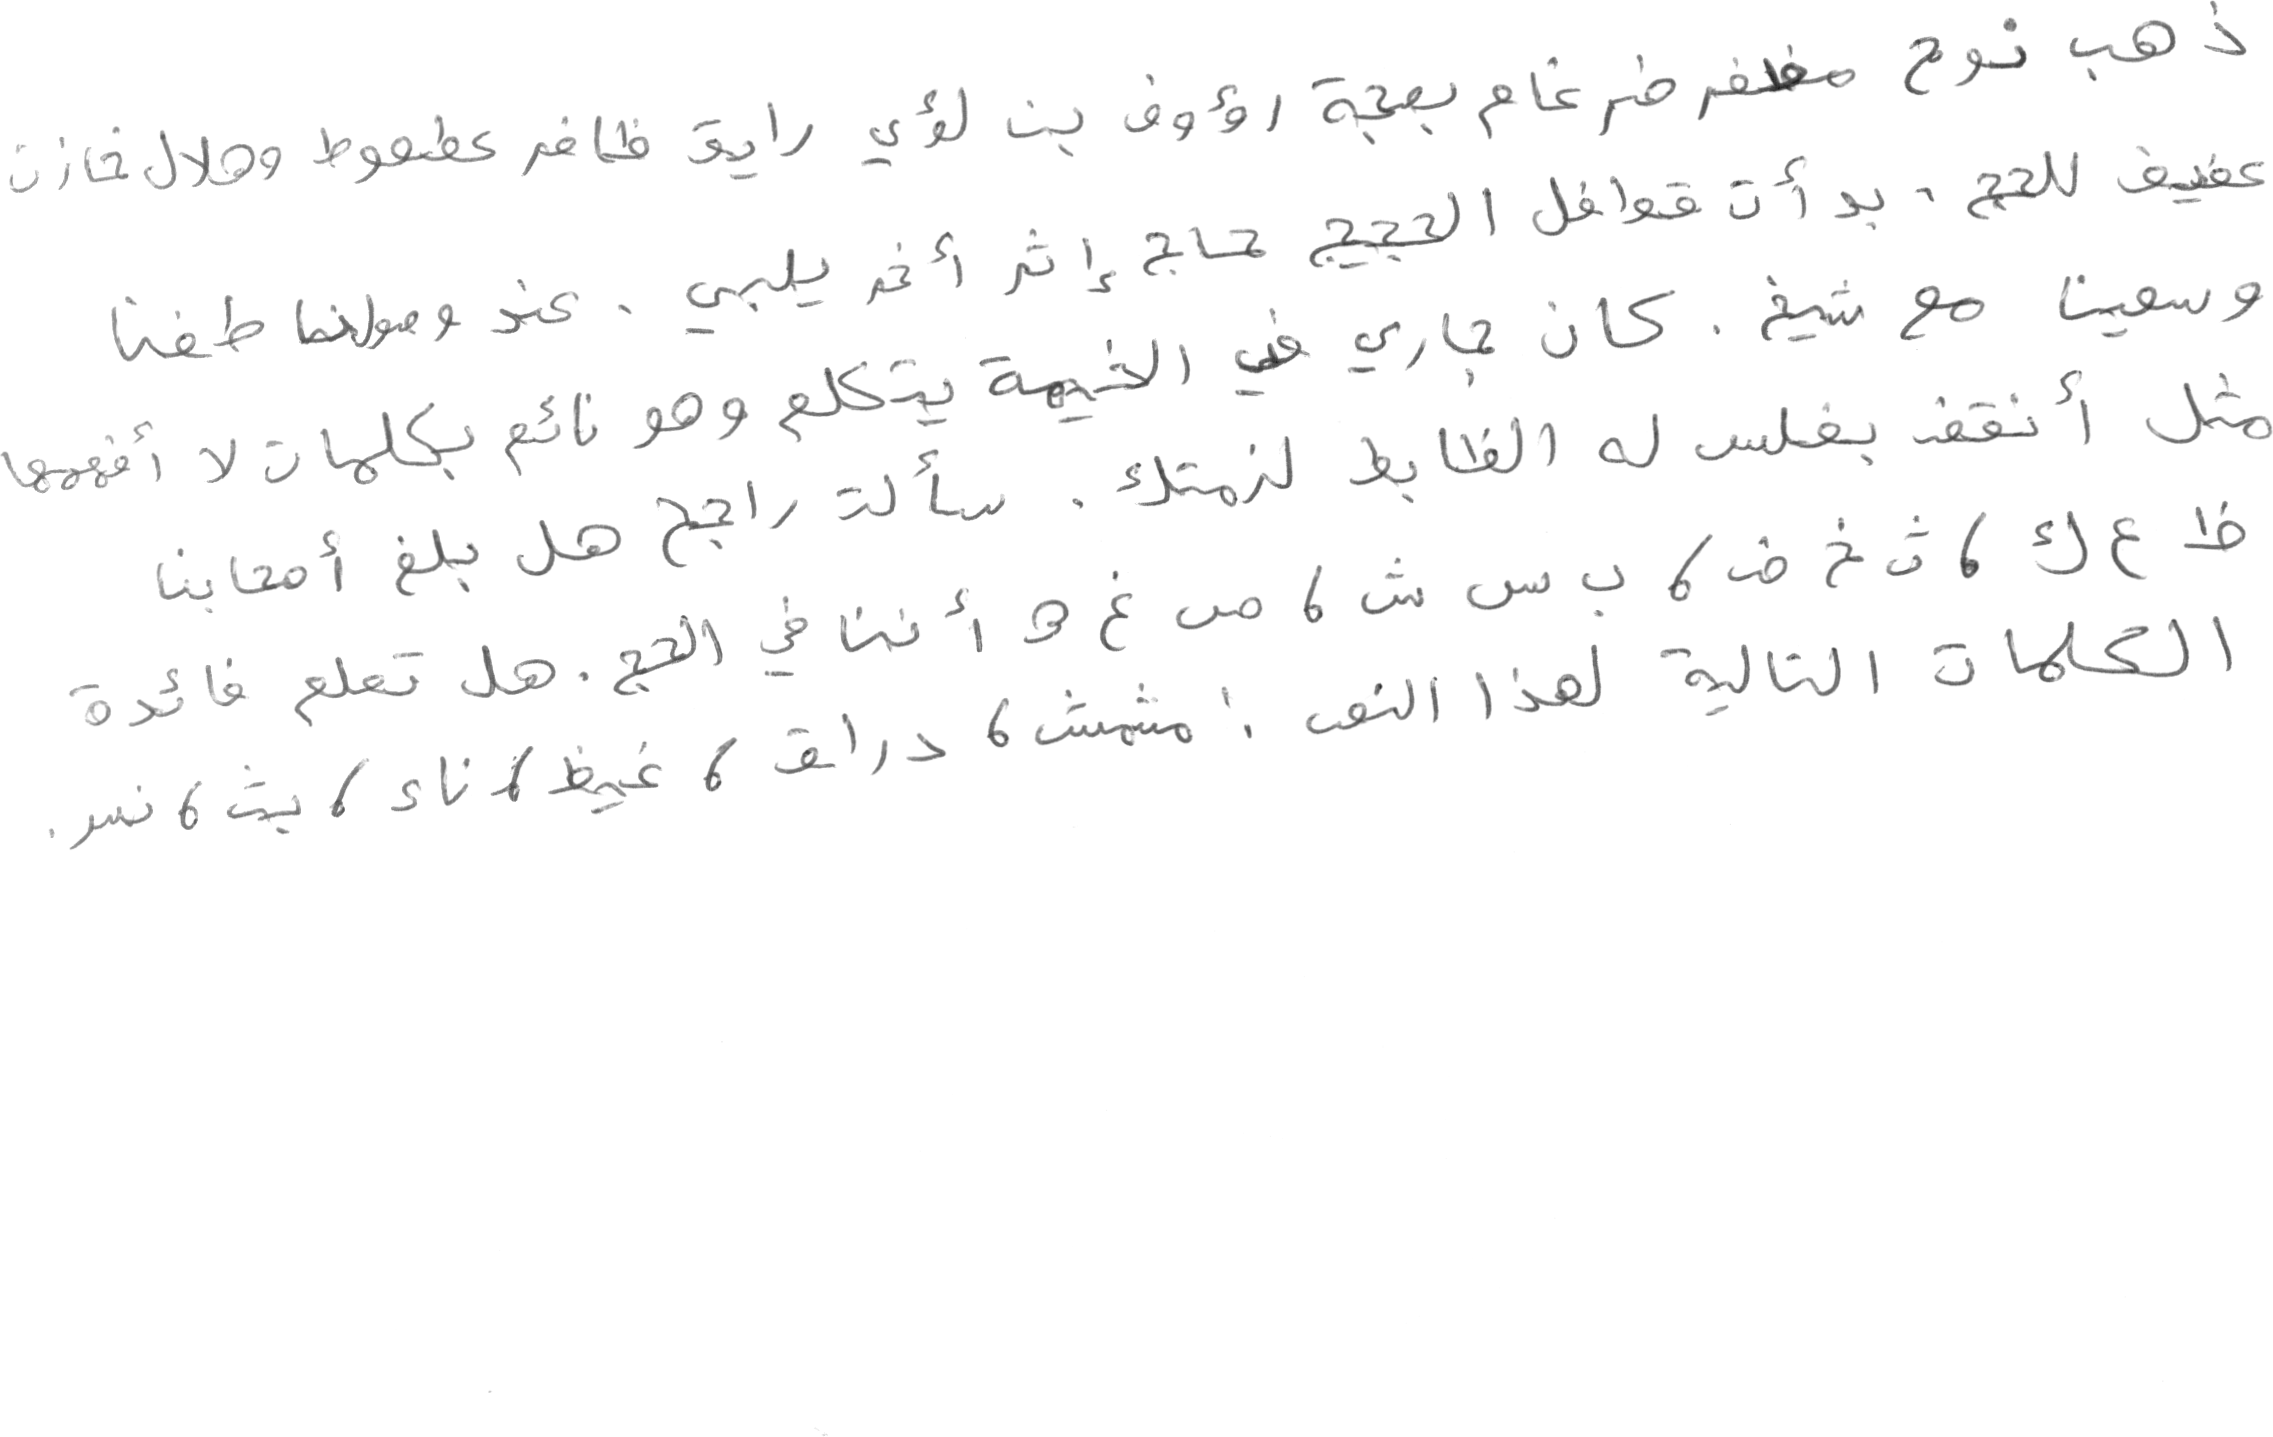 ذهب نوح مظفر ضرغام بصحبة رؤوف بن لؤي رايق ظافر عطعوط وهلال خازن
عفيف للحج ، بدأت قوافل الحجيج حاج إثر أخر يلبي . عند وصولنا طفنا
وسعينا مع شيخ . كان جاري في الخيمة يتكلم وهو نائم بكلمات لا أفهمها
مثل أنقف بغلس له الظابط لزمتك . سألت راجح هل بلغ أصحابنا
ظ ع ك ، ث خ ض ، ب س ش ، ص غ ه أننا في الحج . هل تعلم فائدة
الكلمات التالية لهذا النص : مشمش ، دراق ، غيظ ، ناء ، بث ، نسر .